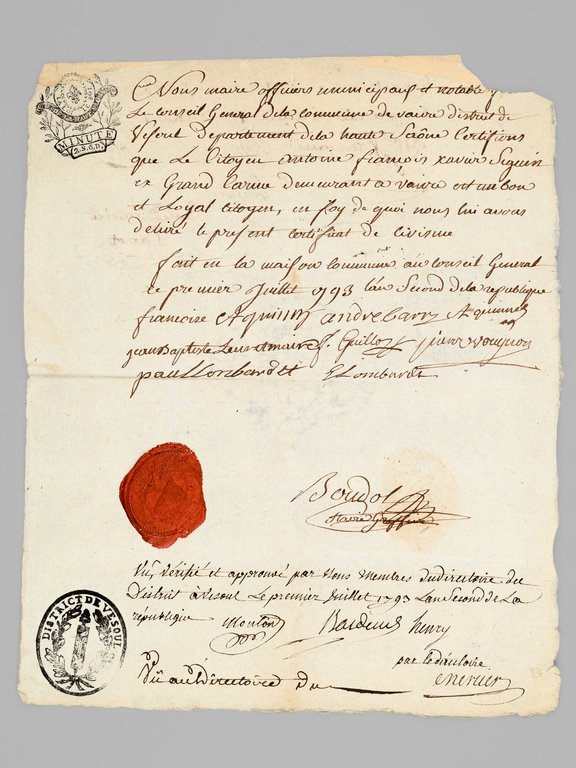 MINUTE
2.S.6.D.
Nous maire officiers municipaux et notable
Le Conseil General de la commune de vaivre district de
Vesoul Departement de la haute Saône Certifions
que Le Citoyen antoine françois xavier Seguin
ex Grand Carme demeurant a vaivre est un bon
et Loyal citoyen, en foy de quoi nous lui avons
délivré le présent certificat de civisme
fait en la maison commune au conseil General
ce premier Juillet 1793 l'an Second de la republique
françoise andre barry
jean Baptiste maire J. Guillo pierre vougnon
paul Lombardet E Lombardet
Boudot
Vu, Vérifié et approuvé par Nous Membres du directoire du
District à Vesoul Le premier Juillet 1793 L'an Second de La
république Monton henry
DISTRICT DE VESOUL
par le directoire
Vu au Directoire du